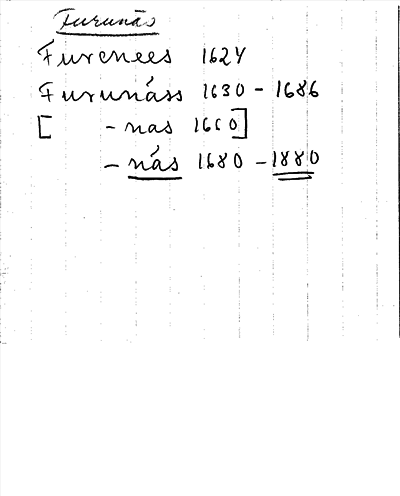 Furunäs
Furenees 1624
Furunäss 1630 - 1686
[ - nas 1660]
- näs 1680 - 1880